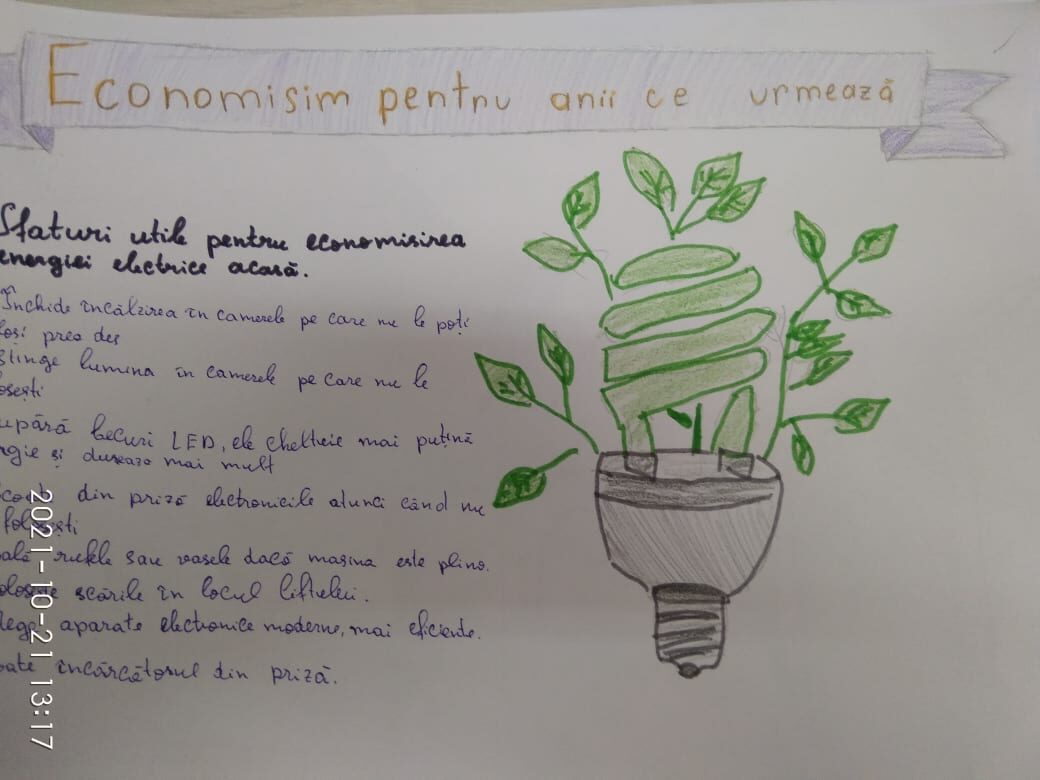 Economisim pentru anii ce urmează
Sfaturi utile pentru economisirea
energiei electrice acasă.
Închide încălzirea în camerele pe care nu le poți
prea des
Stinge lumina în camerele pe care nu le
osești
upără becuri LED, ele cheltuie mai puțină
rgie și durează mai mult
din priză electronicile atunci când nu
folosești
ală rufele sau vasele dacă mașina este plină.
olosește scările în locul liftului.
lege aparate electronice moderne, mai eficiente.
oate încărcătorul din priză.
2021-10-21 13:17